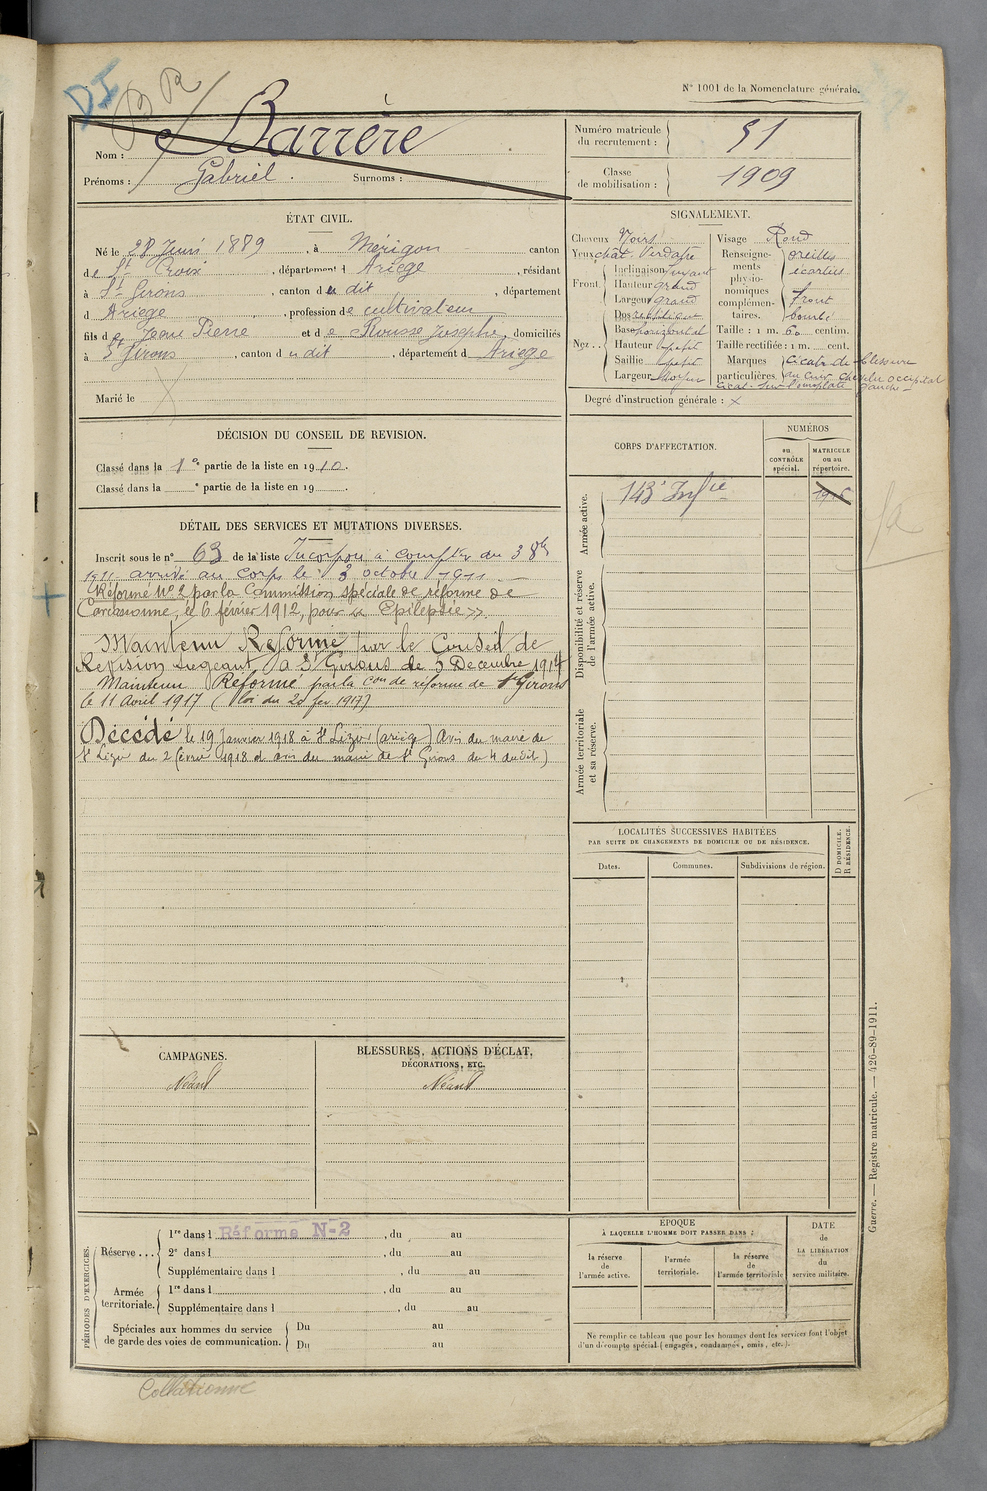 DI
BR
N° 1001 de la Nomenclature générale.
Nom : Barrère
Prénoms : Gabriel . Surnoms :
Numéro matricule du recrutement : 51
Classe de mobilisation : 1909
ÉTAT CIVIL.
Né le 28 Juin 1889, à Mérigon canton
de Ste Croix, département d Ariège, résidant
à St Girons, canton du dit, département
d Ariège, profession de cultivateur
fils de Jean Pierre et de Rousse Josephe, domiciliés
à St Girons, canton du dit, département d Ariège
Marié le
SIGNALEMENT.
Cheveux Noirs
Yeux chat. Verdatre
Front. Inclinaison fuyant
Hauteur grand
Largeur grand
Nez... Dos rectiligne
Base horizontal
Hauteur petit
Saillie petit
Largeur Moyen
Visage Rond
Renseignements physionomiques complémentaires. oreilles
écartées
front
bombé
Taille : 1 m. 60 centim.
Taille rectifiée : 1 m. cent.
Marques particulières cicatr. de blessure
du cuir chevelu occipital
cicat. sur l'omoplate gauche -
Degré d'instruction générale : x
DÉCISION DU CONSEIL DE REVISION.
Classé dans la 1e partie de la liste en 1910.
Classé dans la e partie de la liste en 19 .
DÉTAIL DES SERVICES ET MUTATIONS DIVERSES.
Inscrit sous le n° 63 de la liste Incorporé à compter du 3 8bre
1911 arrivé au corps le 3 octobre 1911. -
Réformé N° 2 par la Commission spéciale de réforme de
Carcassonne, le 6 février 1912, pour « Epilepsie ».
Maintenu Réformé par le Conseil de
Révision siégeant à St Girons de 5 Décembre 1914
Maintenu Réformé par la Con de réforme de St Girons
le 11 Avril 1917 (loi du 20 fev 1917)
Décédé le 19 Janvier 1918 à St Lizier (ariège) Avis du maire de
St Lizier du 2 février 1918 et avis du maire de St Girons du 4 dudit)
CORPS D'AFFECTATION.
NUMÉROS
au CONTRÔLE spécial.
MATRICULE ou au répertoire.
Armée active.
143e Infie
Disponibilité et réserve de l'armée active.
Armée territoriale et sa réserve.
LOCALITÉS SUCCESSIVES HABITÉES
PAR SUITE DE CHANGEMENTS DE DOMICILE OU DE RÉSIDENCE.
Dates.
Communes.
Subdivisions de région.
D DOMICILE.
R RÉSIDENCE.
CAMPAGNES.
Néant
BLESSURES, ACTIONS D'ÉCLAT,
DÉCORATIONS, ETC.
Néant
PÉRIODES D'EXERCICES.
Réserve... 1re dans l Réforme N-2, du au
2e dans l , du au
Supplémentaire dans l , du au
Armée territoriale. 1re dans l , du au
Supplémentaire dans l , du au
Spéciales aux hommes du service de garde des voies de communication. Du au
Du au
ÉPOQUE
À LAQUELLE L'HOMME DOIT PASSER DANS :
la réserve de l'armée active.
l'armée territoriale.
la réserve de l'armée territoriale
DATE de LA LIBÉRATION du service militaire.
Ne remplir ce tableau que pour les hommes dont les services font l'objet
d'un décompte spécial (engagés, condamnés, omis, etc.).
Guerre. — Registre matricule. — 426-89-1911.
Collationné